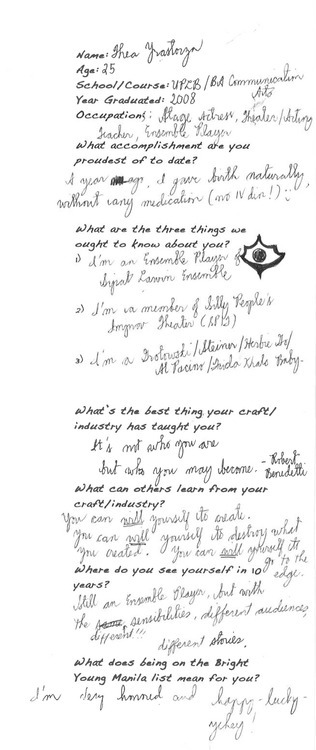 Name: Thea Yrastorza
Age: 25
School/Course: UPLB/BA Communication
Arts
Year Graduated: 2008
Occupation: Stage Actress, Theater/Acting
Teacher, Ensemble Player
What accomplishment are you
proudest of to date?
A year ago, I gave birth naturally,
without any medication (no IV din!) :)
What are the three things we
ought to know about you?
1) I'm an Ensemble Player of
Sipat Lawin Ensemble
2) I'm a member of Silly People's
Improv Theater (SPIT)
3) I'm a Grotowski/Steiner/Herbie
Al Pacino/Frida Khalo Baby.
What's the best thing your craft/
industry has taught you?
It's not who you are
but who you may become. - Robert
Benedetti
What can others learn from your
craft/industry?
You can will yourself to create.
You can will yourself to destroy what
you created. You can will yourself to
go to the
edge.
Where do you see yourself in 10
years?
Still an Ensemble Player, but with
the same, sensibilities, different audiences,
different!!!
different stories.
What does being on the Bright
Young Manila list mean for you?
I'm very honored and happy-lucky-